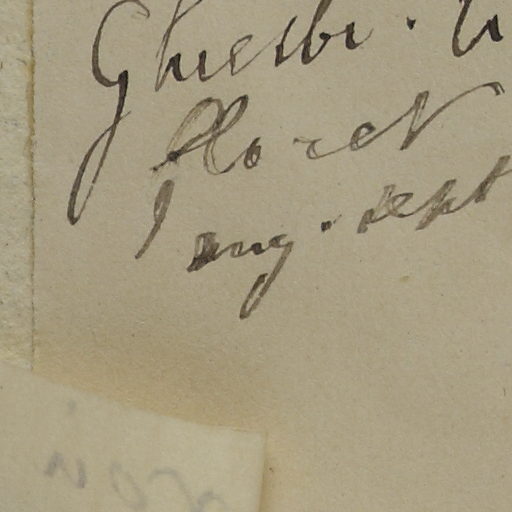 Ghiesbr.
floret
aug. sept